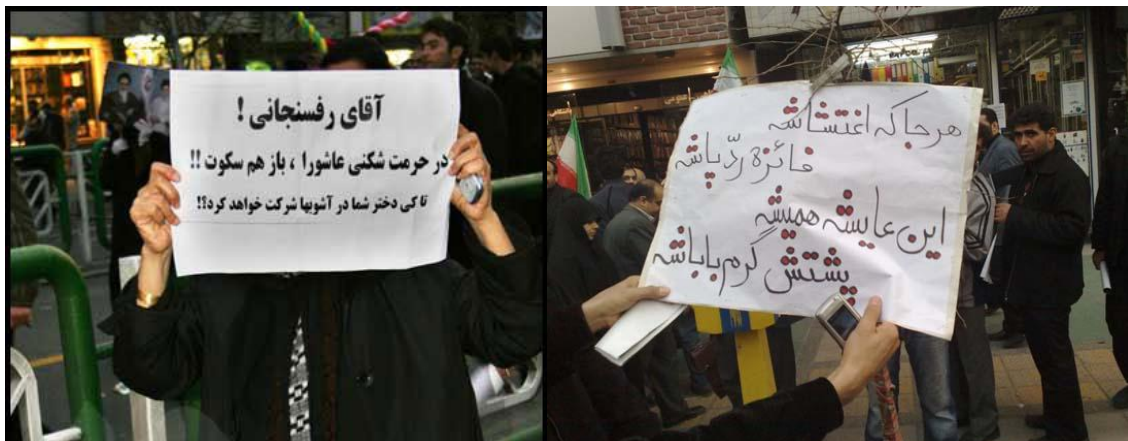 آقای رفسنجانی !
در حرمت شکنی عاشورا ، باز هم سکوت !!
تا کی دختر شما در آشوبها شرکت خواهد کرد؟!
هر جا که اغتشاشه
فائزه ردّ پاشه
این عایشه همیشه
پشتش گرم باباشه